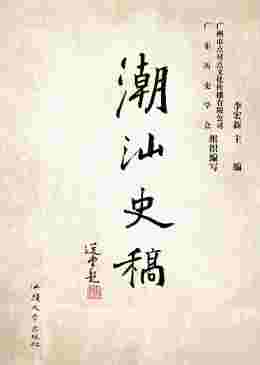 广州市点对点文化传播有限公司
广东历史学会 组织编写
李宏新 主编
潮汕史稿
选堂题
汕头大学出版社